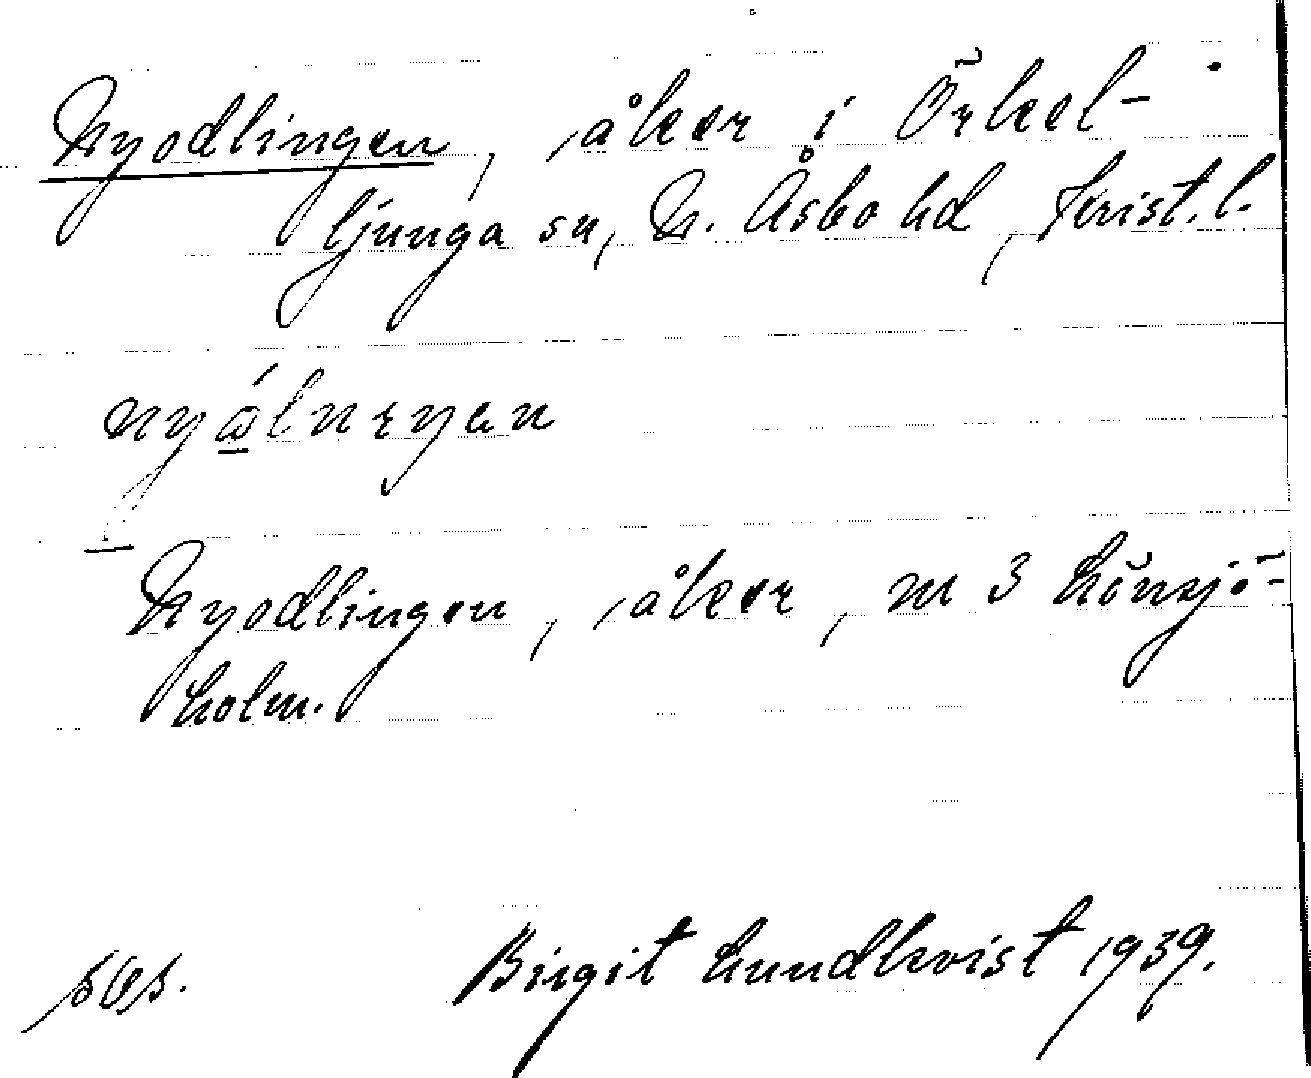 Nyodlingen, åker i Örkel-
ljunga sn, N. Åsbo hd, Krist. l.
Nyodlingen, åker, m 3 Lönsjö-
holm.
Birgit Lundkvist 1939.